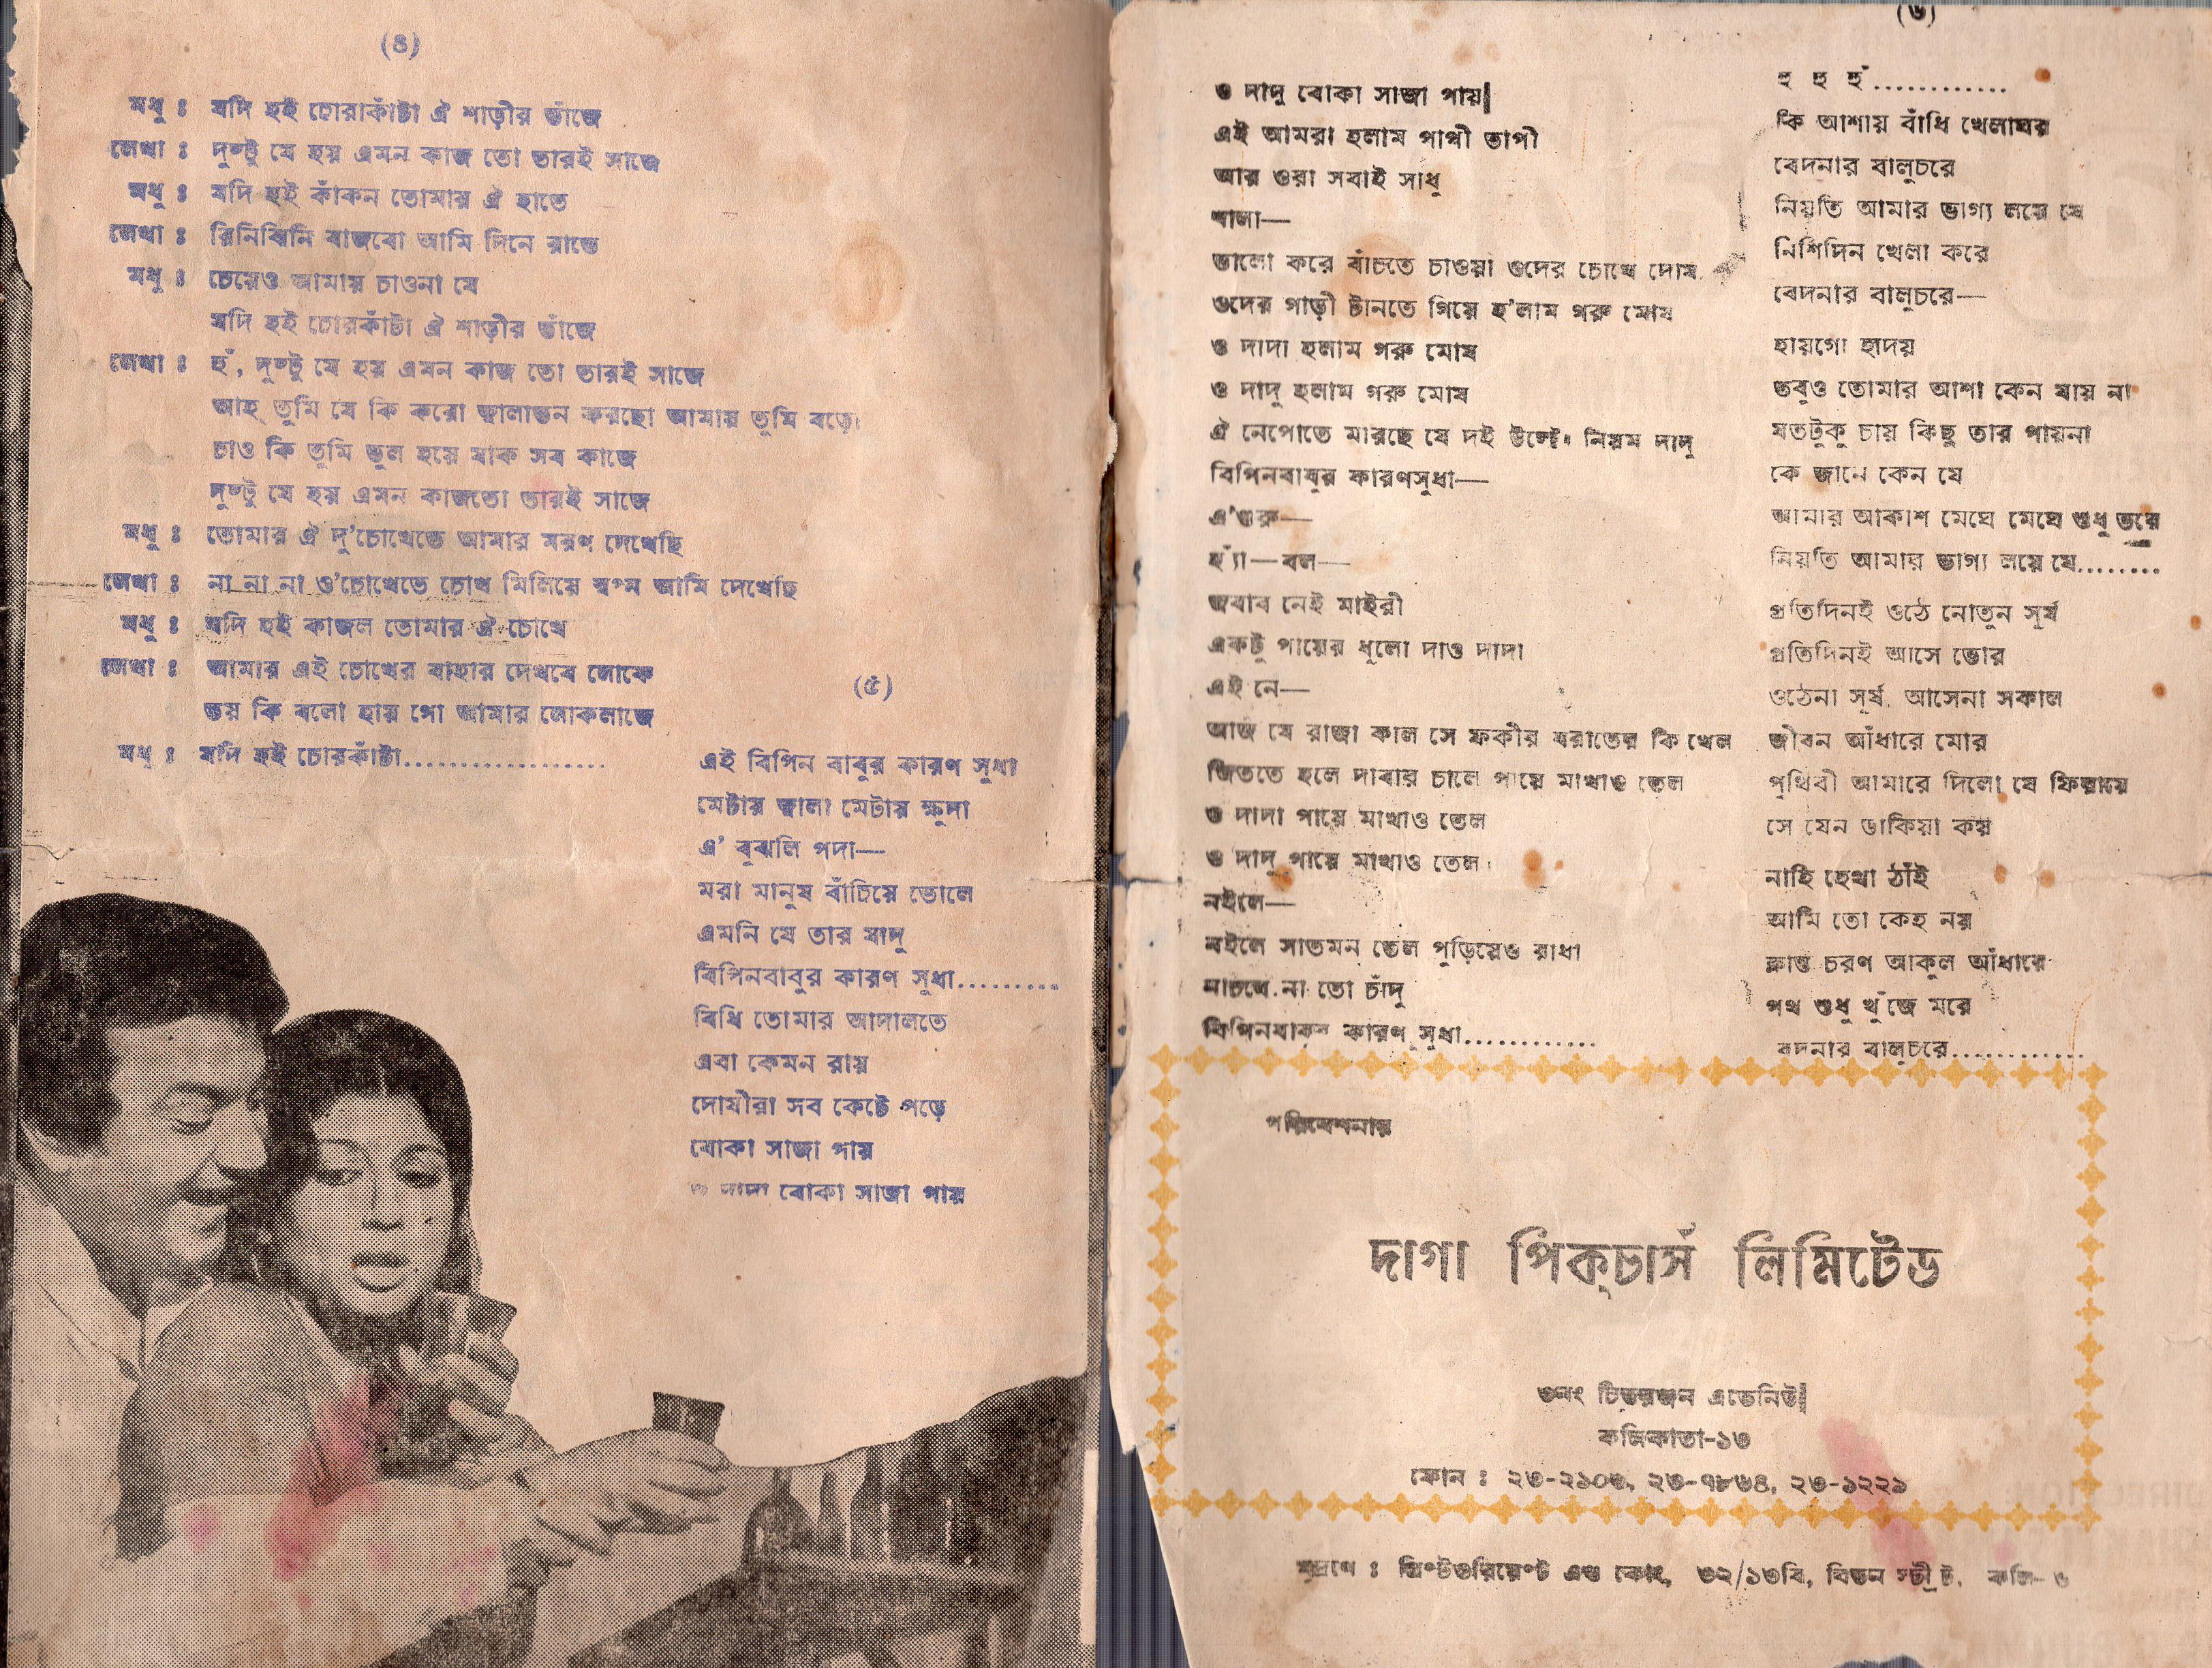 (৪)
মধু : যদি হই চোরাকাঁটা ঐ শাড়ীর ভাঁজে
লেখা : দুষ্টু যে হয় এমন কাজ তো তারই সাজে
মধু : যদি হই কাঁকন তোমার ঐ হাতে
লেখা : রিনিঝিনি বাজবো আমি দিনে রাতে
মধু : চেয়েও আমায় চাওনা যে
যদি হই চোরকাঁটা ঐ শাড়ীর ভাঁজে
লেখা : হুঁ, দুষ্টু যে হয় এমন কাজ তো তারই সাজে
আহ্ তুমি যে কি করো জ্বালাতন করছো আমায় তুমি বড়ো
চাও কি তুমি ভুল হয়ে যাক সব কাজে
দুষ্টু যে হয় এমন কাজতো তারই সাজে
মধু : তোমার ঐ দু'চোখেতে আমার মরণ দেখেছি
লেখা : না না না ও'চোখেতে চোখ মিলিয়ে স্বপ্ন আমি দেখেছি
মধু : যদি হই কাজল তোমার ঐ চোখে
লেখা : আমার এই চোখের বাহার দেখবে লোকে
ভয় কি বলো হায় গো আমার লোকলাজে
মধু : যদি হই চোরকাঁটা...................
(৫)
এই বিপিন বাবুর কারণ সুধা
মেটায় জ্বালা মেটায় ক্ষুদা
এ' বুঝলি গদা—
মরা মানুষ বাঁচিয়ে তোলে
এমনি যে তার যাদু
বিপিনবাবুর কারণ সুধা..........
বিধি তোমার আদালতে
এবা কেমন রায়
দোষীরা সব কেটে পড়ে
বোকা সাজা পায়
ও দাদা বোকা সাজা পায়
ও দাদু বোকা সাজা পায়
এই আমরা হলাম পাপী তাপী
আর ওরা সবাই সাধু
শালা—
ভালো করে বাঁচতে চাওয়া ওদের চোখে দোষ
ওদের গাড়ী টানতে গিয়ে হ'লাম গরু মোষ
ও দাদা হলাম গরু মোষ
ও দাদু হলাম গরু মোষ
ঐ নেপোতে মারছে যে দই উল্টো নিয়ম দাদু
বিপিনবাবুর কারণসুধা—
এ'গুরু—
হ্যাঁ—বল—
জবাব নেই মাইরী
একটু পায়ের ধুলো দাও দাদা
এই নে—
আজ যে রাজা কাল সে ফকীর বরাতের কি খেল
জিততে হলে দাবার চালে পায়ে মাখাও তেল
ও দাদা পায়ে মাখাও তেল
ও দাদু পায়ে মাখাও তেল
নইলে—
নইলে সাতমন তেল পুড়িয়েও রাধা
নাচবে না তো চাঁদু
বিপিনবাবুর কারণ সুধা............
(৬)
হু হু হুঁ............
কি আশায় বাঁধি খেলাঘর
বেদনার বালুচরে
নিয়তি আমার ভাগ্য লয়ে যে
নিশিদিন খেলা করে
বেদনার বালুচরে—
হায়গো হৃদয়
তবুও তোমার আশা কেন যায় না
যতটুকু চায় কিছু তার পায়না
কে জানে কেন যে
আমার আকাশ মেঘে মেঘে শুধু ভরে
নিয়তি আমার ভাগ্য লয়ে যে........
প্রতিদিনই ওঠে নোতুন সূর্য
প্রতিদিনই আসে ভোর
ওঠেনা সূর্য, আসেনা সকাল
জীবন আঁধারে মোর
পৃথিবী আমারে দিলো যে ফিরায়ে
সে যেন ডাকিয়া কয়
নাহি হেথা ঠাঁই
আমি তো কেহ নয়
ক্লান্ত চরণ আকুল আঁধারে
পথ শুধু খুঁজে মরে
বেদনার বালুচরে............
পরিবেশনায়
দাগা পিক্চার্স লিমিটেড
৩নং চিত্তরঞ্জন এভেনিউ
কলিকাতা-১৩
ফোন : ২৩-২১০৩, ২৩-৭৮৬৪, ২৩-১২২১
মুদ্রণে : প্রিন্টওরিয়েন্ট এণ্ড কোং, ৩২/১৩বি, বিডন স্ট্রীট, কলি-৬